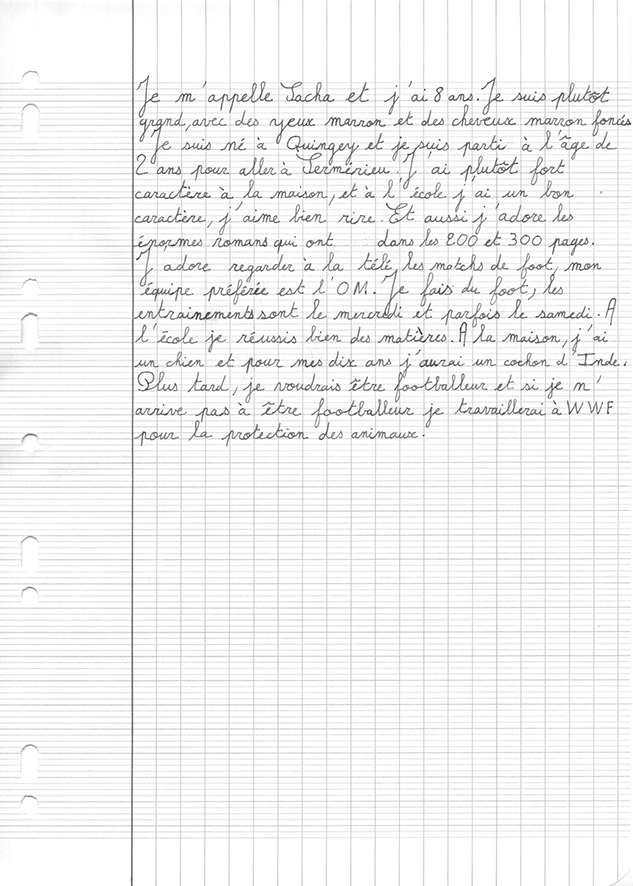 Je m'appelle Sacha et j'ai 8 ans. Je suis plutôt
grand, avec des yeux marron et des cheveux marron foncés
Je suis né à Quingey et je suis parti à l'âge de
2 ans pour aller à Sermérieu. J'ai plutôt fort
caractère à la maison, et à l'école j'ai un bon
caractère, j'aime bien rire. Et aussi j'adore les
énormes romans qui ont dans les 200 et 300 pages.
J'adore regarder à la télé, les matchs de foot, mon
équipe préférée est l'OM. Je fais du foot, les
entrainements sont le mercredi et parfois le samedi. A
l'école je réussis bien des matières. A la maison, j'ai
un chien et pour mes dix ans j'aurai un cochon d'Inde.
Plus tard, je voudrais être footballeur et si je m'
arrive pas à être footballeur je travaillerai à WWF
pour la protection des animaux.